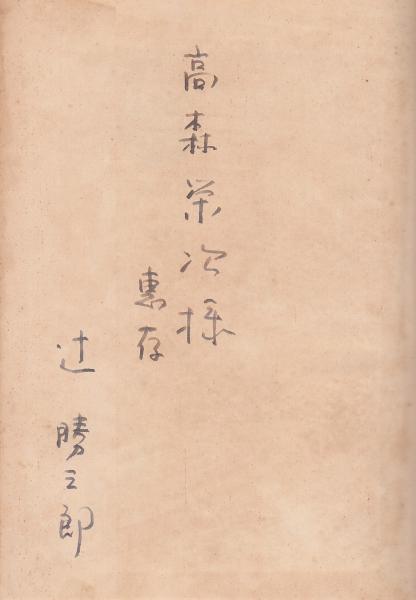 高森栄次様
恵存
辻勝三郎